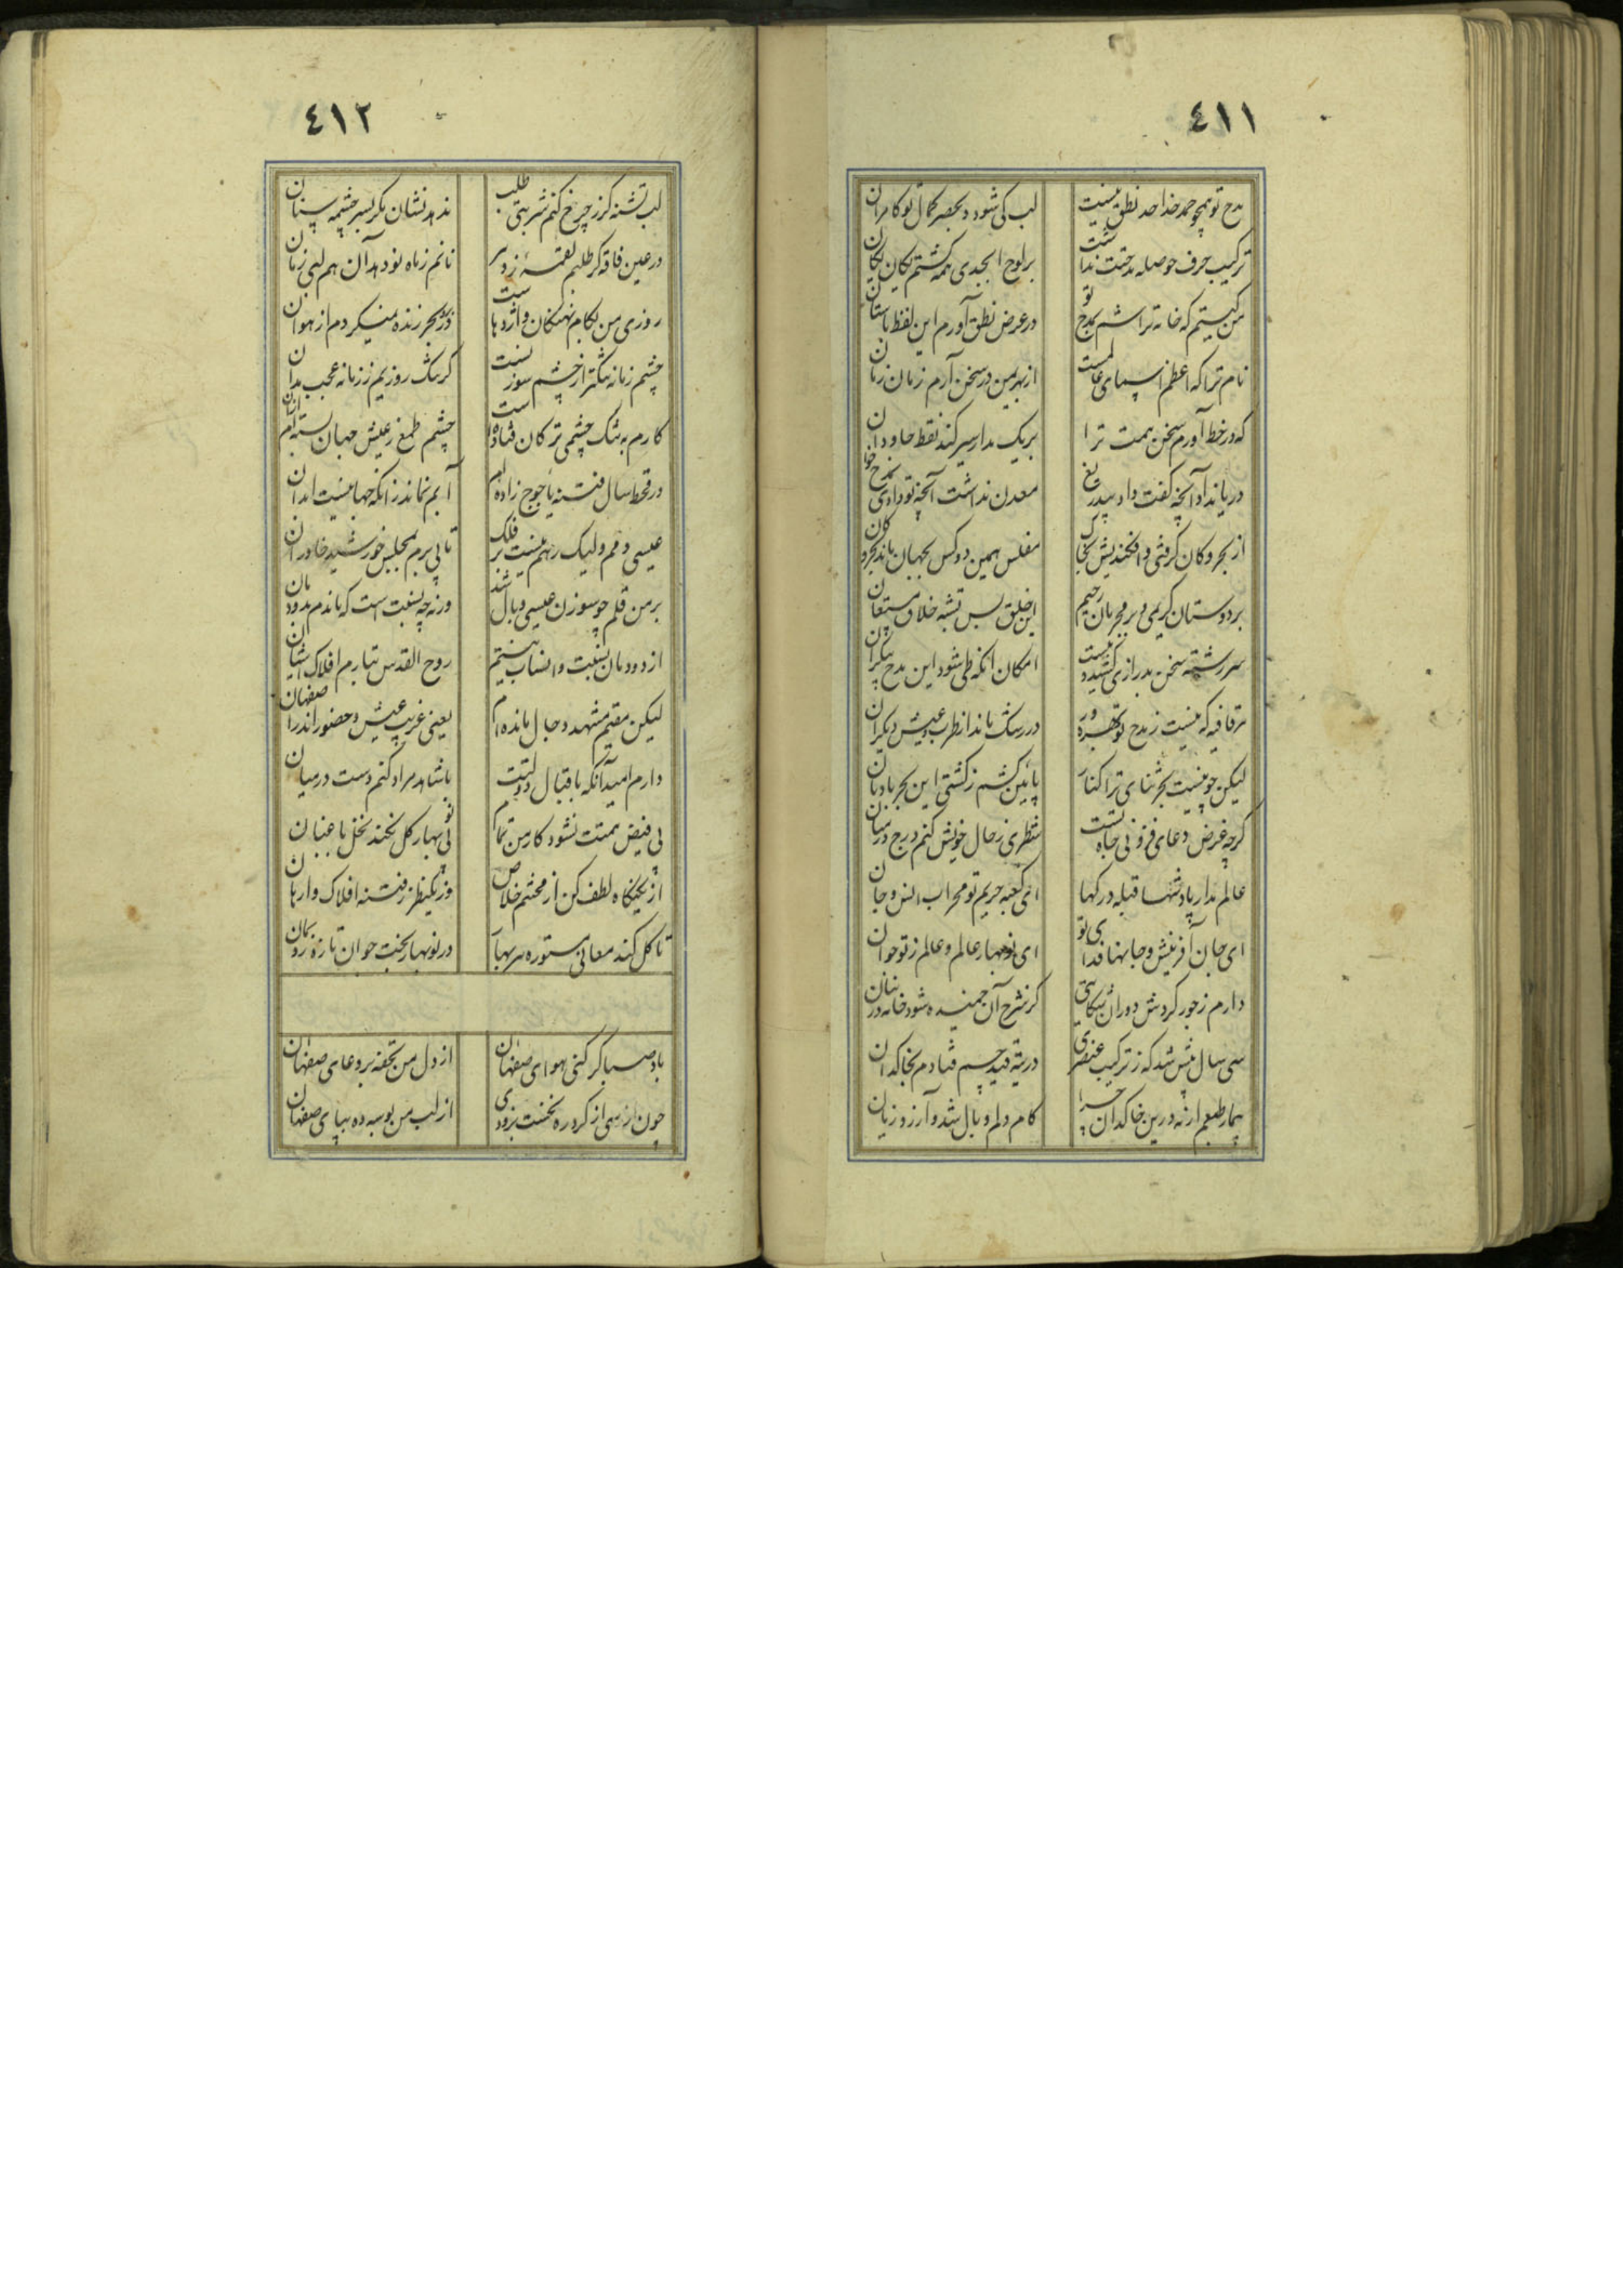 ٤١١
مدح تو همچو حمد خدا حد نطق نیست
لب کی شود بحصر کمال تو کامران
ترکیب حرف حوصله مدحتت نداشت
بر لوح ابجدی همه گشتم یکان یکان
من کیستم که خامه تراشم بمدح تو
در عرض نطق آورم این لفظ باستان
نام ترا که اعظم اسمای عالمست
از بهر یمن در سخن آرم زمان زمان
که در خط آورم سخن همت ترا
بر یک مدار سیر کند نقطه جاودان
دریا نداد آنچه کفت داد بیدریغ
معدن نداشت آنچه تو دادی
از بحر و کان گرفتی و افکندیش بخاک
مفلس همین دو کس بجهان ماند بحر و کان
بر دوستان کریمی و بر مجرمان رحیم
این خلق بس تشبه خلاق مستعان
سررشته سخن بدرازی کشید و نیست
امکان آنکه طی شود این مدح بیکران
هر قافیه که نیست ز مدح تو بهره ور
در رشک ماند از طرب و عیش دیگران
لیکن چو نیست بحر ثنای ترا کنار
پائین کشم ز کشتی این بحر بادبان
گرچه غرض دعای فزونی جاه تست
شطری ز حال خویش کنم درج در میان
عالم مدار پادشها قبله درگها
ای کعبه حریم تو محراب انس و جان
ای جان آفرینش و جانها فدای تو
ای نوبهار عالم و عالم ز تو جوان
دارم ز جور گردش دوران شکایتی
کز شرح آن خمیده شود خامه در بنان
سی سال بیش شد که ز ترکیب عنصری
در تیه قید جسم فتادم بخاکدان
بیمار طبعم ارنه درین خاکدان چرا
کام دلم وبال شد و آرزو زیان
٤١٢
لب تشنه گر ز چرخ کنم شربتی طلب
ندهد نشان مگر بسر چشمه سنان
در عین فاقه گر طلبم لقمه ز دهر
نانم ز ماه نو دهد آن هم لبی ز نان
روزی من بکام نهنگان و اژدهاست
در بحر زنده میگردم از هوان
چشم زمانه تنگتر از چشم سوزنست
گر تنگ روزیم ز زمانه عجب مدان
کارم به تنگ چشمی ترکان فتاده است
چشم طمع ز عیش جهان بسته ام ازان
در قحط سال فتنه یاجوج زاده ام
آبم نماند زانکه جهانیست ابدان
عیسی دمم ولیک رهم نیست بر فلک
تا پی برم بمجلس خورشید خاوران
بر من قلم چو سوزن عیسی وبال شد
ورنه چه نسبت است که ماندم بدودمان
از دودمان نسبت و انساب نیستم
روح القدس تبارم افلاک آشیان
لیکن مقیم مشهد و جال مانده ام
یعنی غریب عیش و حضور اندر اصفهان
دارم امید آنکه باقبال دولتت
با شاهد مراد کنم دست در میان
بی فیض همتت نشود کار من تمام
بی نوبهار گل نکند نخل باغبان
از یک نگاه لطف کن از محتشم خلاص
وز یک نظر ز فتنه افلاک وارهان
تا گل کند معانی مستوره هر بهار
در نوبهار بخت جوان تازه رو بمان
باد صبا گر کنی هوای صفهان
از دل من تحفه بر دعای صفهان
چون نرسی از گرد ره نخست بزودی
از لب من بوسه ده بپای صفهان